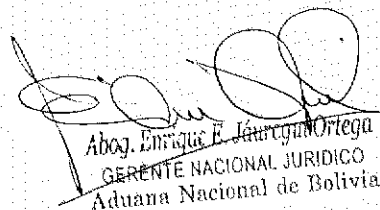 Abog. Enrique E. Jáuregui Ortega
GERENTE NACIONAL JURIDICO
Aduana Nacional de Bolivia